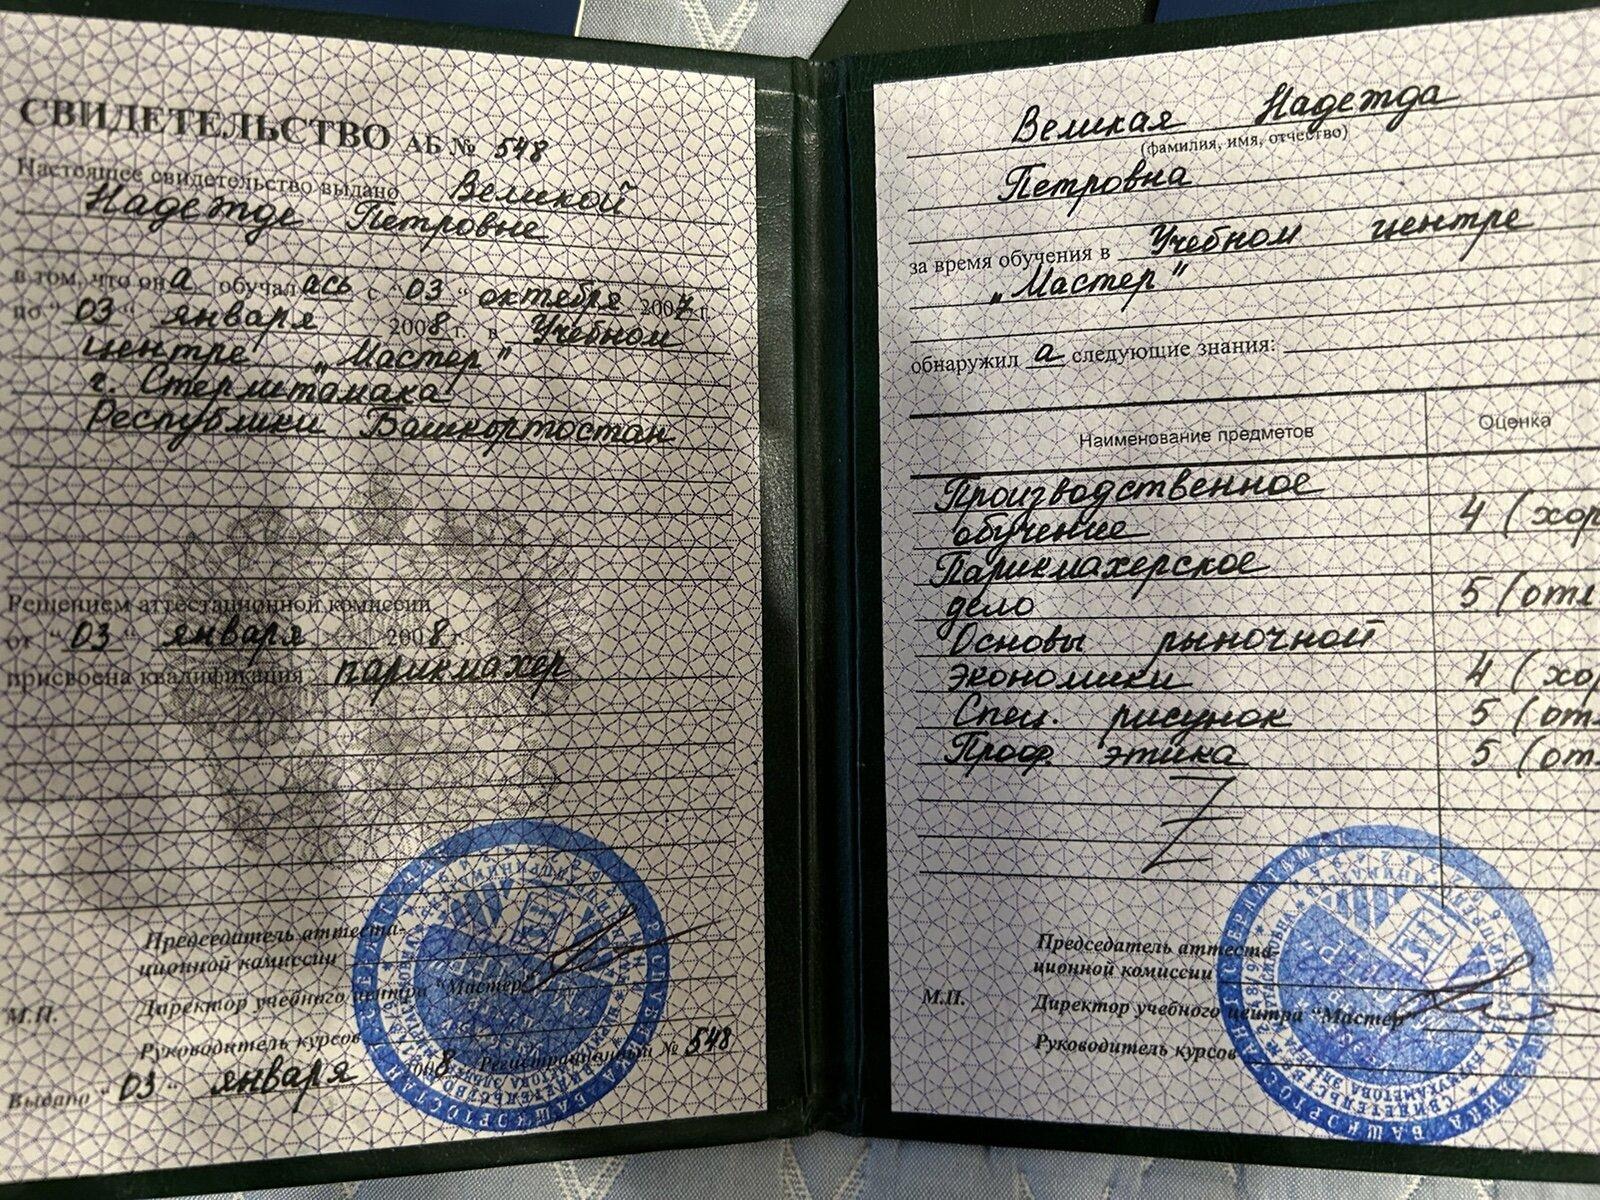 СВИДЕТЕЛЬСТВО АБ № 548
Настоящее свидетельство выдано Великой
Надежде Петровне
в том, что он а обучал ась с "03" октября 2007 г.
по "03" января 2008 г. в Учебном
центре „Мастер"
г. Стерлитамака
Республики Башкортостан
Решением аттестационной комиссии
от "03" января 2008 г.
присвоена квалификация парикмахер
Председатель аттеста-
ционной комиссии
Директор учебного центра "Мастер"
М.П.
Руководитель курсов
Выдано "03" января 2008 Регистрационный № 548
Великая Надежда
(фамилия, имя, отчество)
Петровна
за время обучения в Учебном центре
„Мастер"
обнаружил а следующие знания:
Наименование предметов Оценка
Производственное
обучение 4 (хор
Парикмахерское
дело 5 (отл
Основы рыночной
экономики 4 (хор
Спец. рисунок 5 (отл
Проф. этика 5 (отл
Председатель аттеста-
ционной комиссии
М.П.
Директор учебного центра "Мастер"
Руководитель курсов